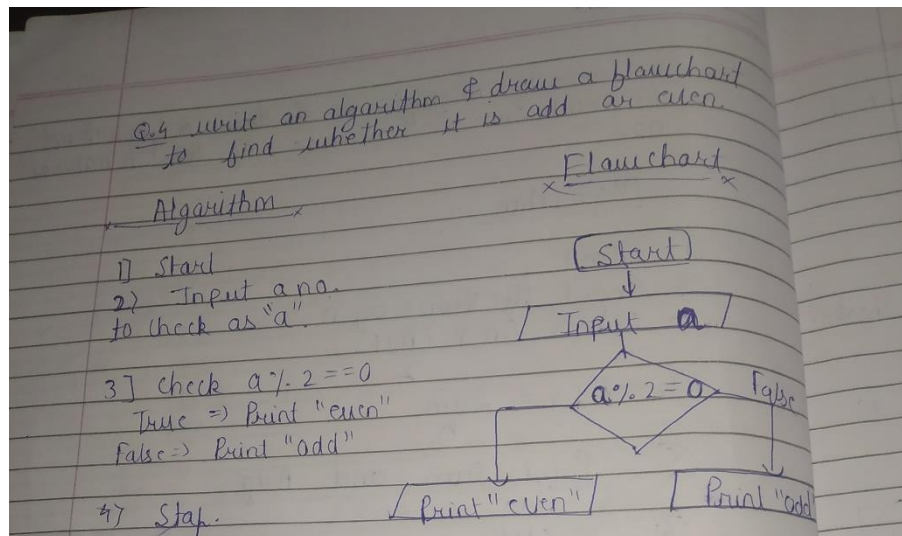 Q.4 write an algorithm & draw a flowchart
to find whether it is odd or even.
Algorithm
1] Start
2) Input a no.
to check as "a".
3] check a % 2 == 0
True => Print "even"
False => Print "odd"
4) Stop.
Flowchart
Start
Input a
a % 2 = 0
False
Print "even"
Print "odd